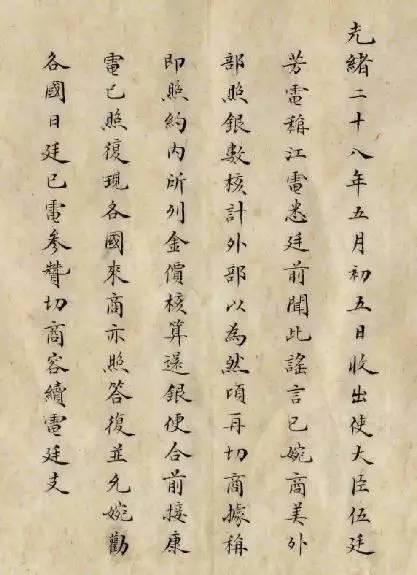 光緒二十八年五月初五日收出使大臣伍廷
芳電稱江電悉廷前聞此謠言已婉商美外
部照銀數核計外部以為然頃再切商據稱
即照約內所列金價核算還銀便合前接康
電已照復現各國來商亦照答復並允婉勸
各國日廷已電參贊切商容續電廷支